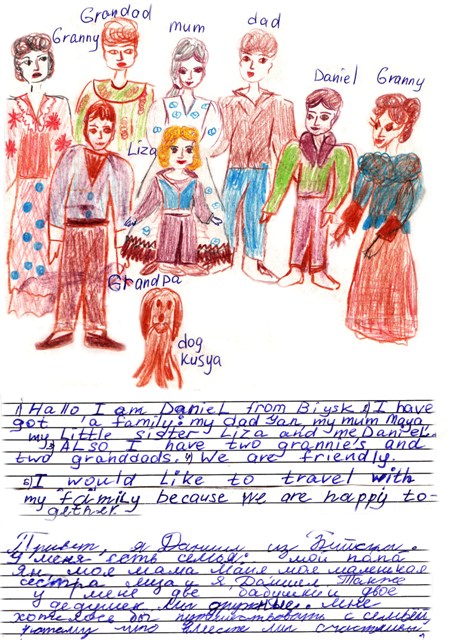 Grandad
Granny
mum
dad
Daniel
Granny
Liza
Grandpa
dog
Kusya
1) Hallo I am Daniel from Biysk 2) I have
got a family: my dad Yan, my mum Maya
my Little sister Liza and me Daniel.
3) ALSO I have two grannies and
two granddads. 4) We are friendly.
5) I would Like to travel with
my family because we are happy to-
gether
Привет, я Даниил из
У меня есть семья: мой папа
Ян, моя мама Майя моя маленькая
сестра Лиза и Я Даниил Также
у меня две бабушки и двое
дедушек Мы дружные. Мне
хотелось бы путешествовать с семьёй,
потому что вместе мы счастливы.